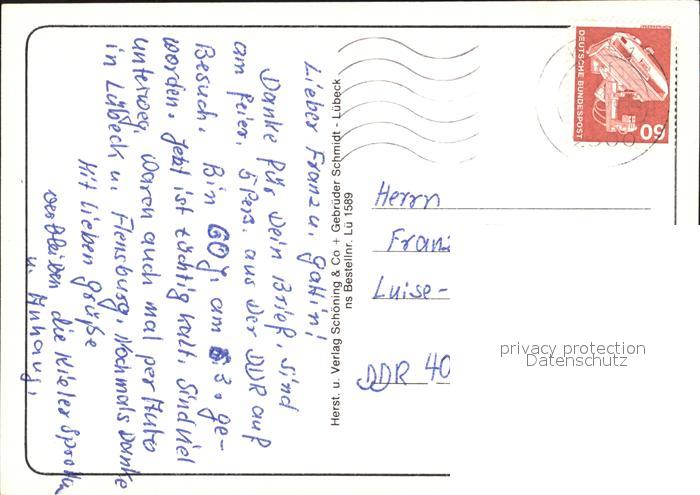 Lieber Franz u. Gattin!
Danke für Dein Brief, sind
am feiern. 5 Pers. aus der DDR auf
Besuch. Bin 60 J. am 3. ge-
worden. Jetzt ist tüchtig kalt. Sind viel
unterweg, waren auch mal per Auto
in Lübeck u. Flensburg. Nochmals Danke
Mit lieben Grüße
verbleiben die Kieler Sprotten
u. Anhang.
Herst. u. Verlag Schöning & Co + Gebrüder Schmidt - Lübeck
ns Bestellnr. Lü 1589
DEUTSCHE BUNDESPOST
60
Herrn
Franz
Luise-
DDR 40
privacy protection
Datenschutz